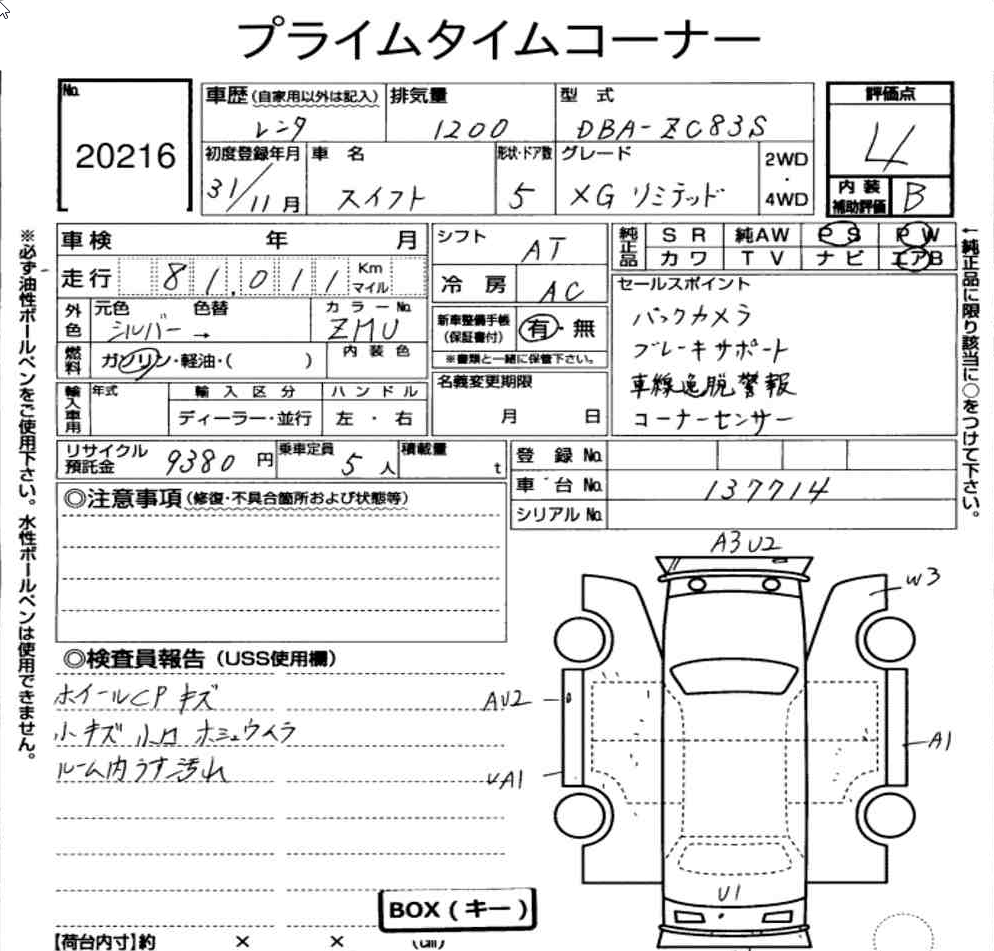 プライムタイムコーナー
No.
20216
車歴(自家用以外は記入)
レンタ
排気量
1200
型 式
DBA-ZC83S
評価点
4
初度登録年月
31/11月
車 名
スイフト
形状・ドア数
5
グレード
XG リミテッド
2WD
・
4WD
内 装
補助評価
B
車検 年 月
走行 81,011 Km
マイル
シフト
AT
冷 房
AC
純正品
SR 純AW PS PW
カワ TV ナビ エアB
外色
元色 色替
シルバー →
カラーNo.
ZMU
燃料
ガソリン・軽油・( )
内 装 色
新車整備手帳
(保証書付)
有・無
※書類と一緒に保管下さい。
セールスポイント
バックカメラ
ブレーキサポート
車線逸脱警報
コーナーセンサー
輸入車用
年式
輸 入 区 分
ディーラー・並行
ハ ン ド ル
左 ・ 右
名義変更期限
月 日
リサイクル
預託金
9380 円
乗車定員
5 人
積載量
t
登 録 No.
車 台 No.
137714
シリアル No.
◎注意事項(修復・不具合箇所および状態等)
◎検査員報告(USS使用欄)
ホイールCP キズ
小キズ 小凹
ルーム内うす汚れ
A3 U2
W3
AU2
A1
UA1
U1
BOX(キー)
【荷台内寸】約 × × (cm)
※必ず油性ボールペンをご使用下さい。水性ボールペンは使用できません。
←純正品に限り該当に○をつけて下さい。